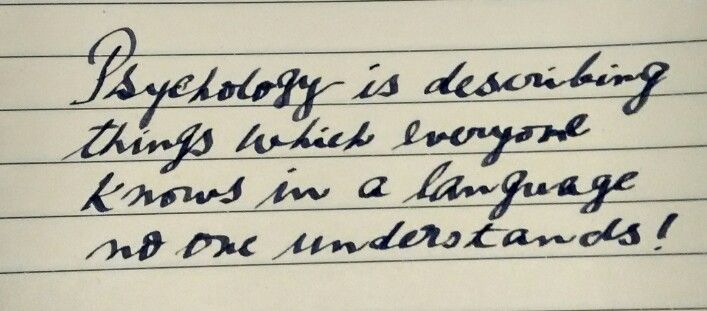 Psychology is describing
things which everyone
knows in a language
no one understands!